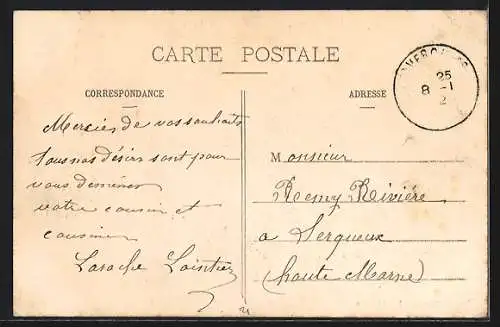 CARTE POSTALE
CORRESPONDANCE
Mercies de vos souhaits
tous nos désirs sont pour
vous
votre cousin et
cousine
Laroche
ADRESSE
25
8 -1
2
Monsieur
Remy Rivière
a Serqueux
(haute Marne)